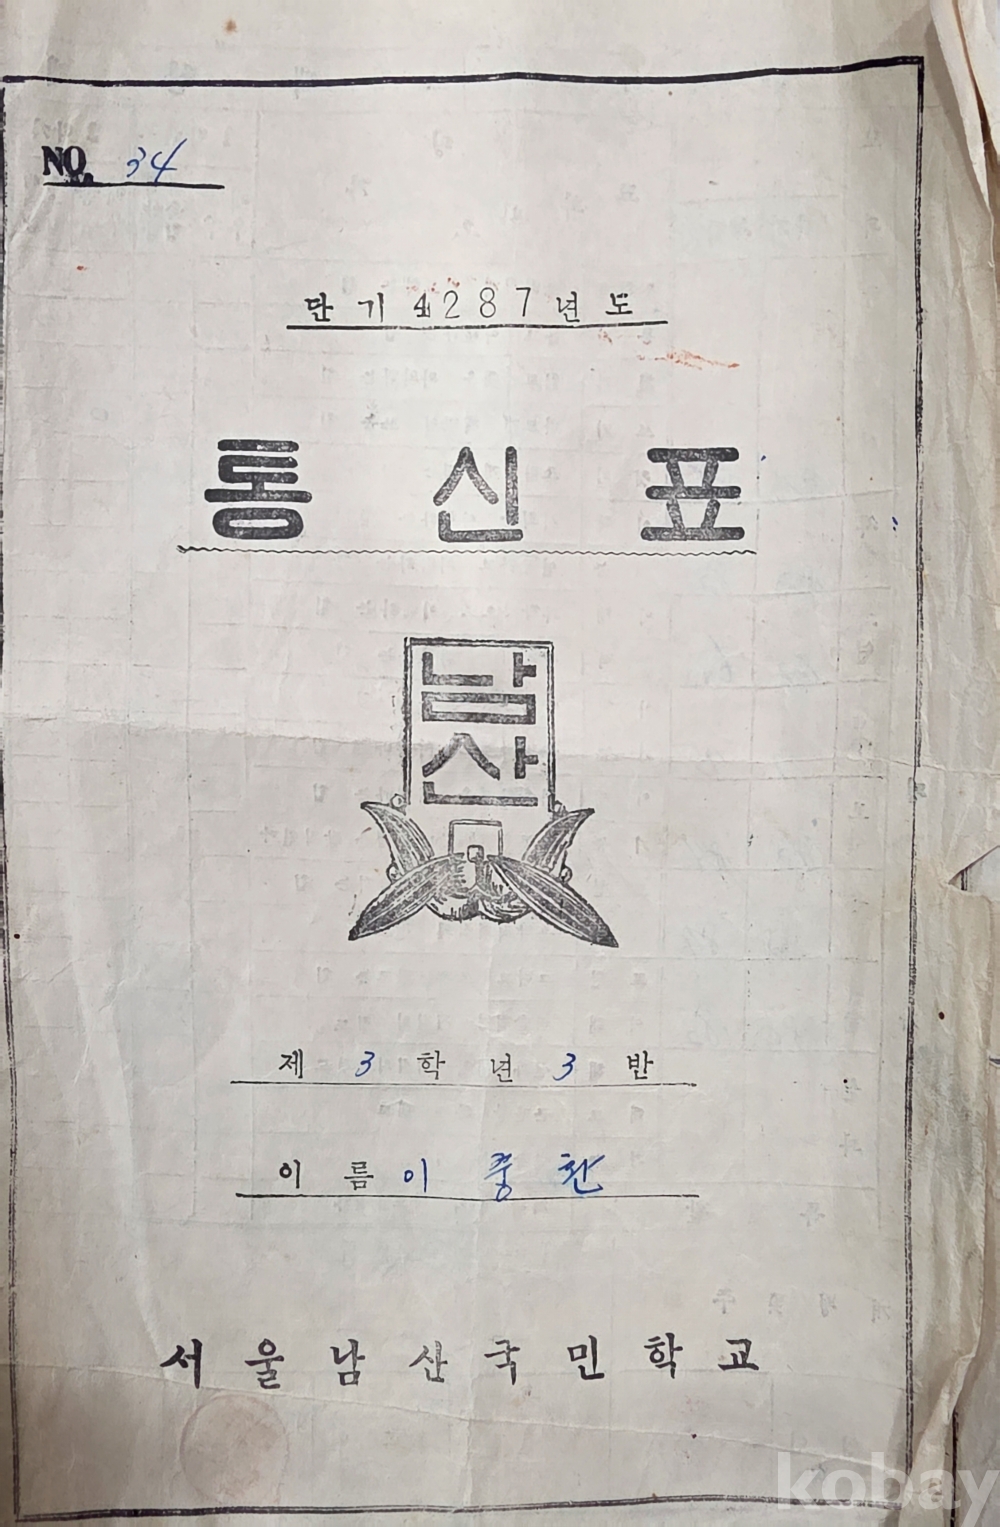 NO. 34
단기 4287년도
통신표
남
산
제 3 학년 3 반
이름 이중찬
서울남산국민학교
kobay